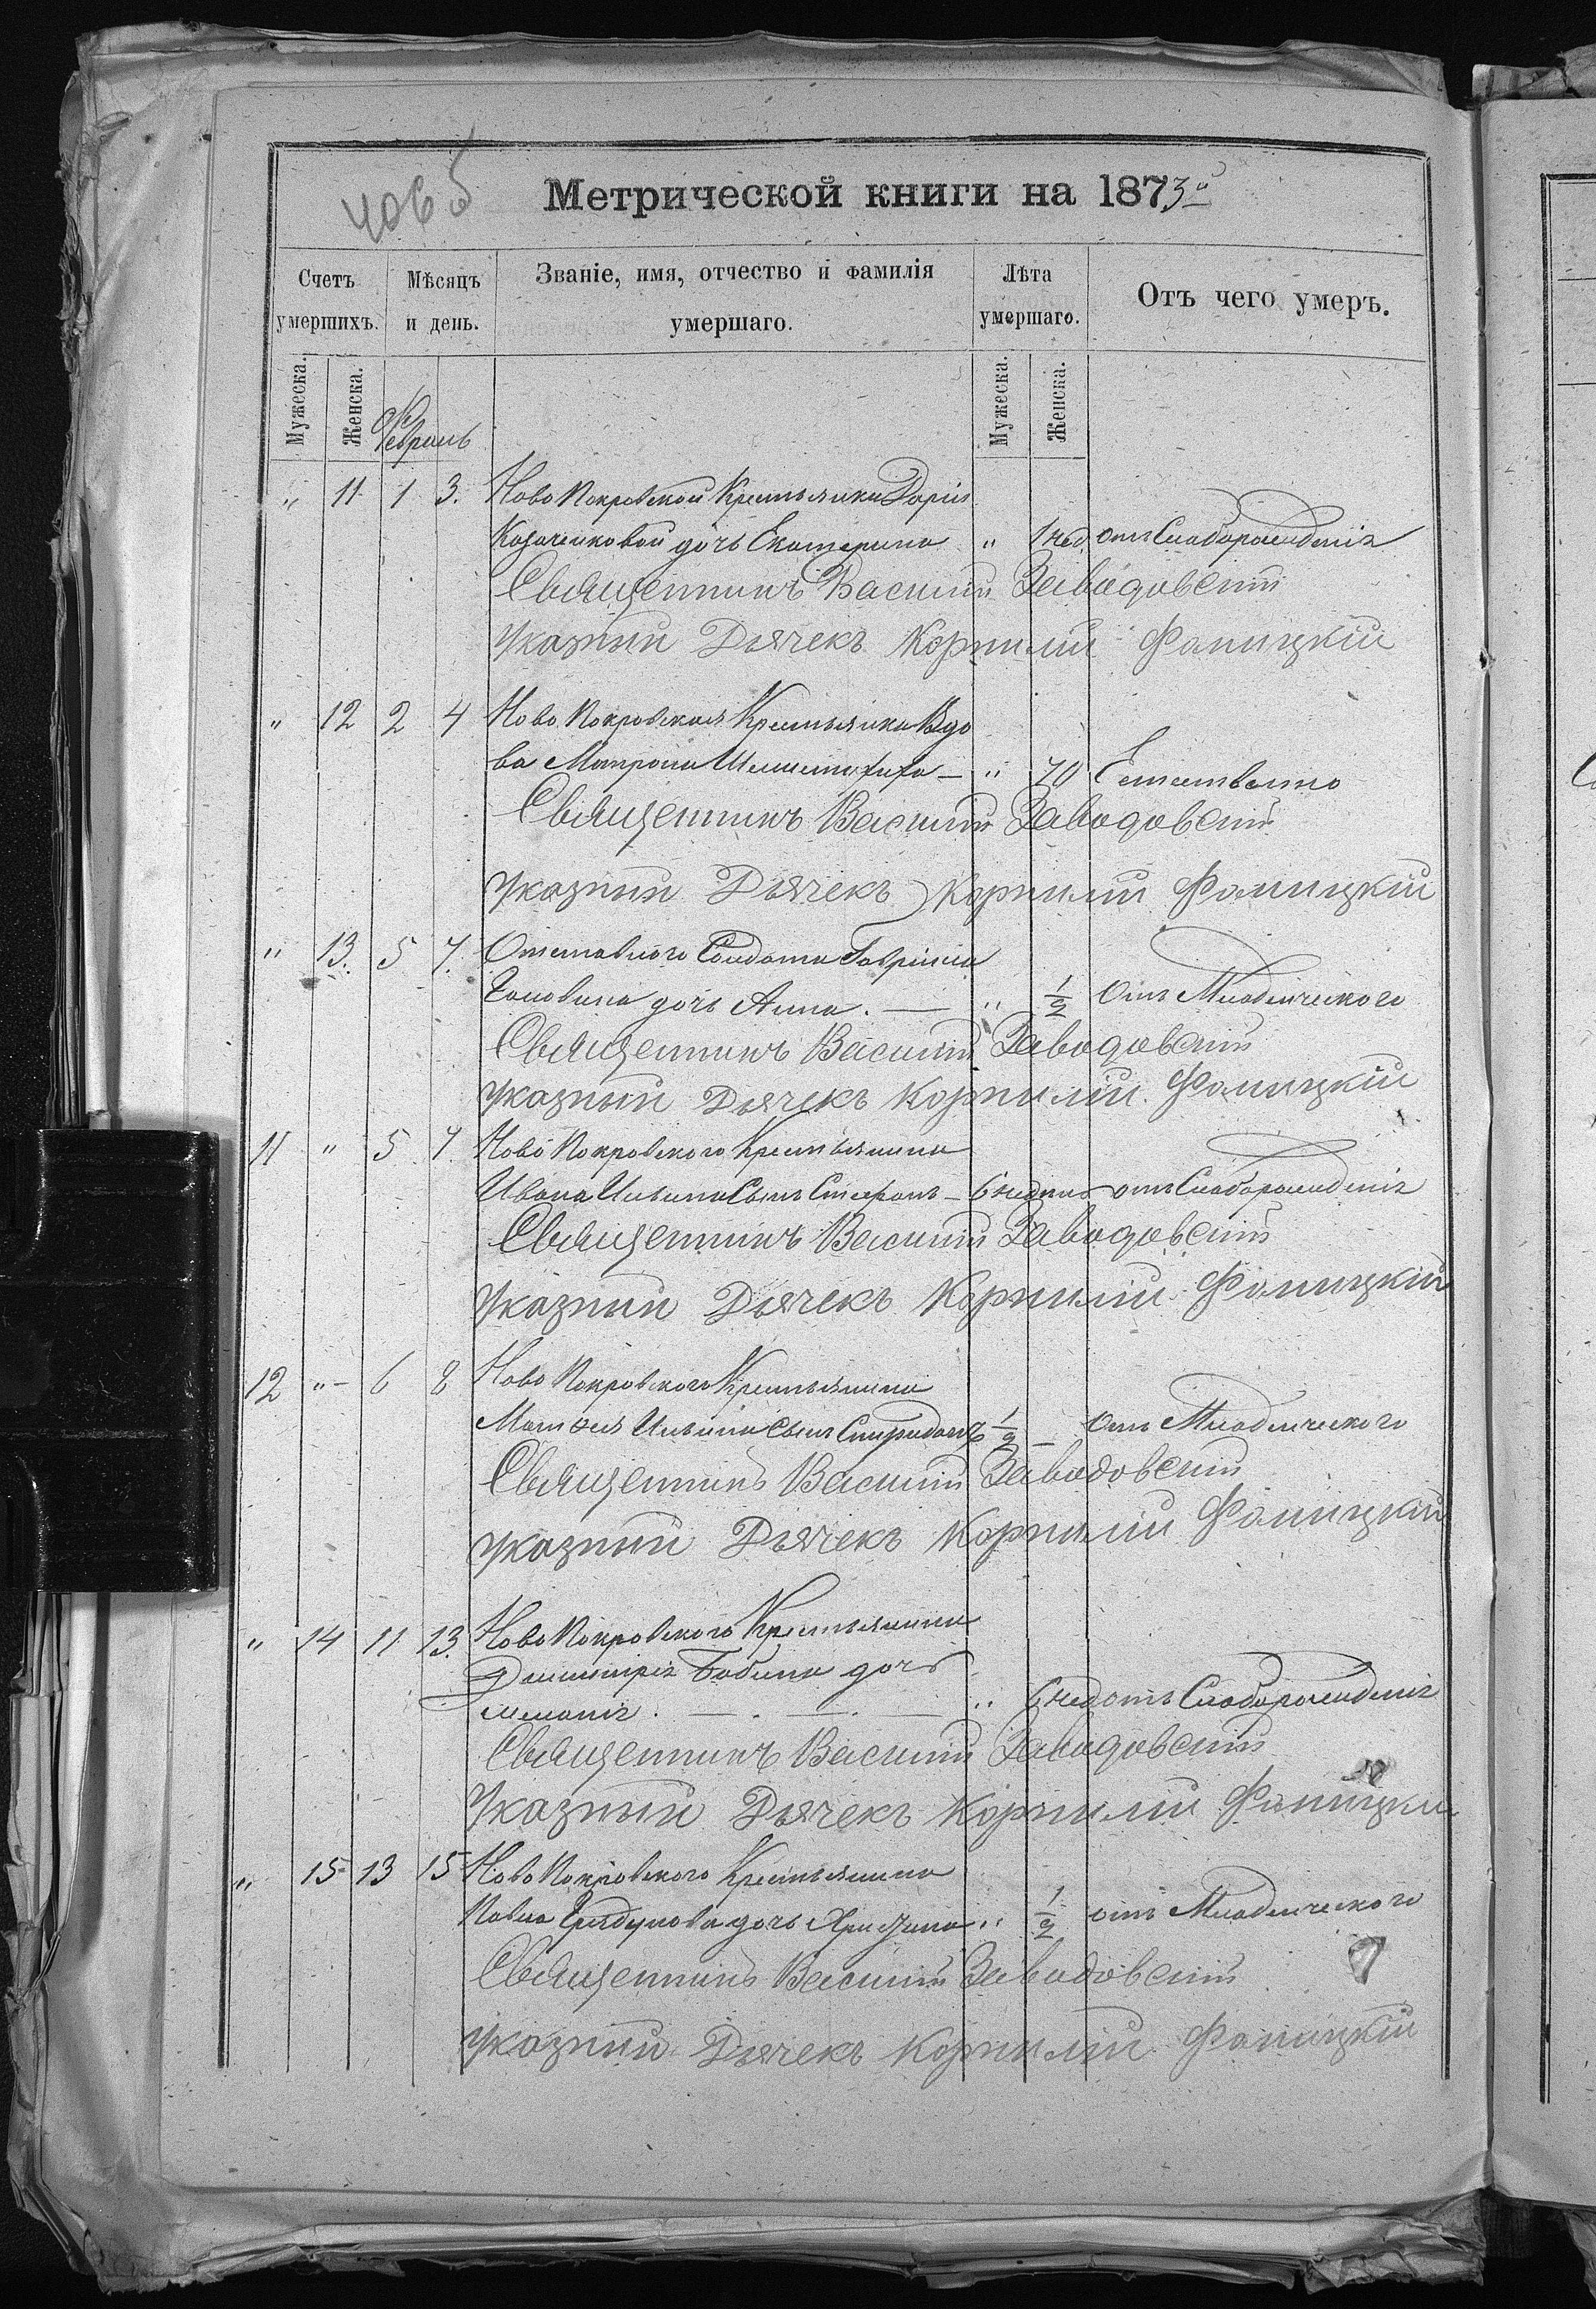 Метрической книги на 1873й
Счетъ умершихъ.
Мѣсяцъ и день.
Званіе, имя, отчество и фамилія умершаго.
Лѣта умершаго.
Отъ чего умеръ.
Мужеска.
Женска.
Февраль
Мужеска.
Женска.
" 11 1 3. Ново Покровской Крестьянки Даріи
Казаченковой дочь Екатерина " 1 нед. отъ Слаборожденія
Священникъ Василій Заводовскій
Указный Дьячекъ Корнилій Фалицкій
" 12 2 4 Ново Покровская Крестьянка Вдо
ва Матрона — " 70 Естественно
Священникъ Василій Заводовскій
Указный Дьячекъ Корнилій Фалицкій
" 13. 5 7. Отставного Солдата Гавріила
дочь Анна. — " 1/2 Отъ Младенческого
Священникъ Василій Заводовскій
Указный Дьячекъ Корнилій Фалицкій
11 " 5 7. Ново Покровского Крестьянина
Ивана Ильина Сынъ Стефанъ — 6 недель отъ Слаборожденія
Священникъ Василій Заводовскій
Указный Дьячекъ Корнилій Фалицкій
12 "– 6 8 Ново Покровского Крестьянина
Матѳея Ильина Сынъ Спиридонъ 1/2 — Отъ Младенческого
Священникъ Василій Заводовскій
Указный Дьячекъ Корнилій Фалицкій
" 14 11 13. Ново Покровского Крестьянина
Димитрія Бабина дочь
Меланія. — . — . — " 6 нед отъ Слаборожденія
Священникъ Василій Заводовскій
Указный Дьячекъ Корнилій Фалицкій
" 15 13 15 Ново Покровского Крестьянина
Павла дочь Христина " 1/2 отъ Младенческого
Священникъ Василій Заводовскій
Указный Дьячекъ Корнилій Фалицкій